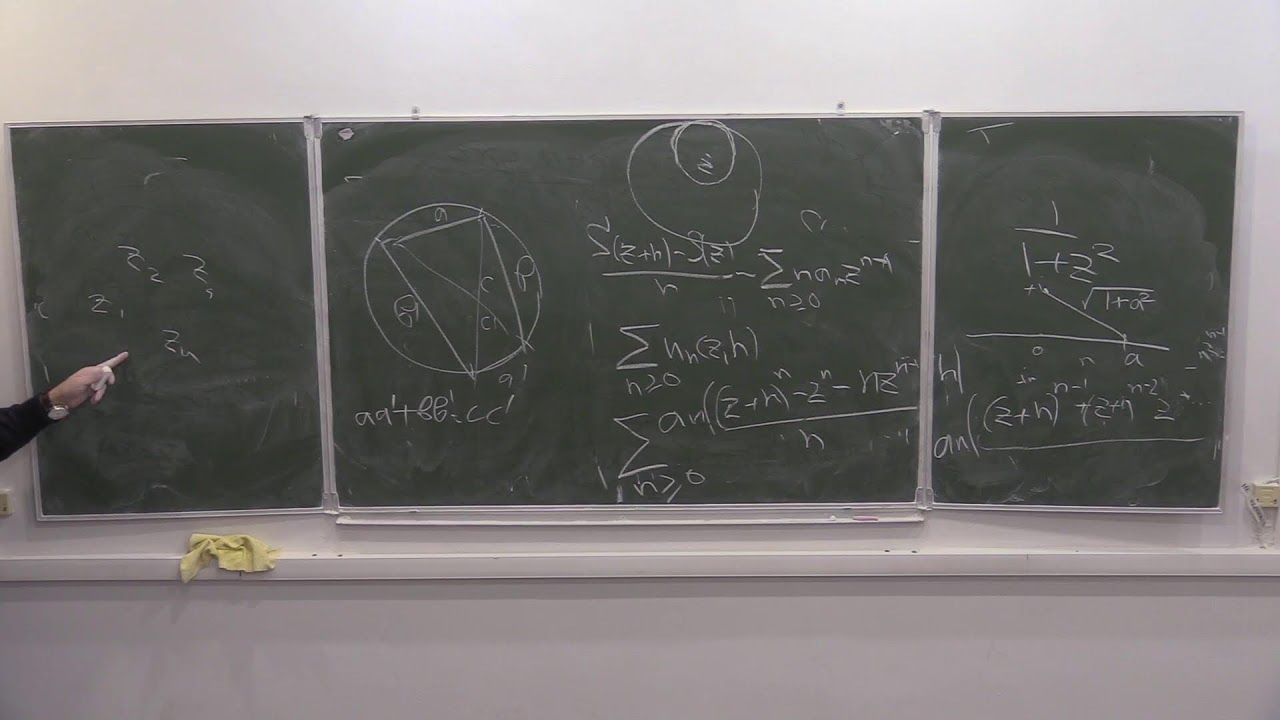 z₂ z₃
z₁
z₄
a
b'
b
c
c'
a'
aa'+bb'=cc'
z
S(z+h)-S(z)/h - ∑ n≥0 n aₙ zⁿ⁻¹
∑ n≥0 uₙ(z,h)
∑ n≥0 aₙ((z+h)ⁿ-zⁿ-nzⁿ⁻¹h)/h
T
1/1+z²
+i
√1+a²
0 a
aₙ((z+h)ⁿ⁻¹+(z+h)ⁿ⁻²z+...